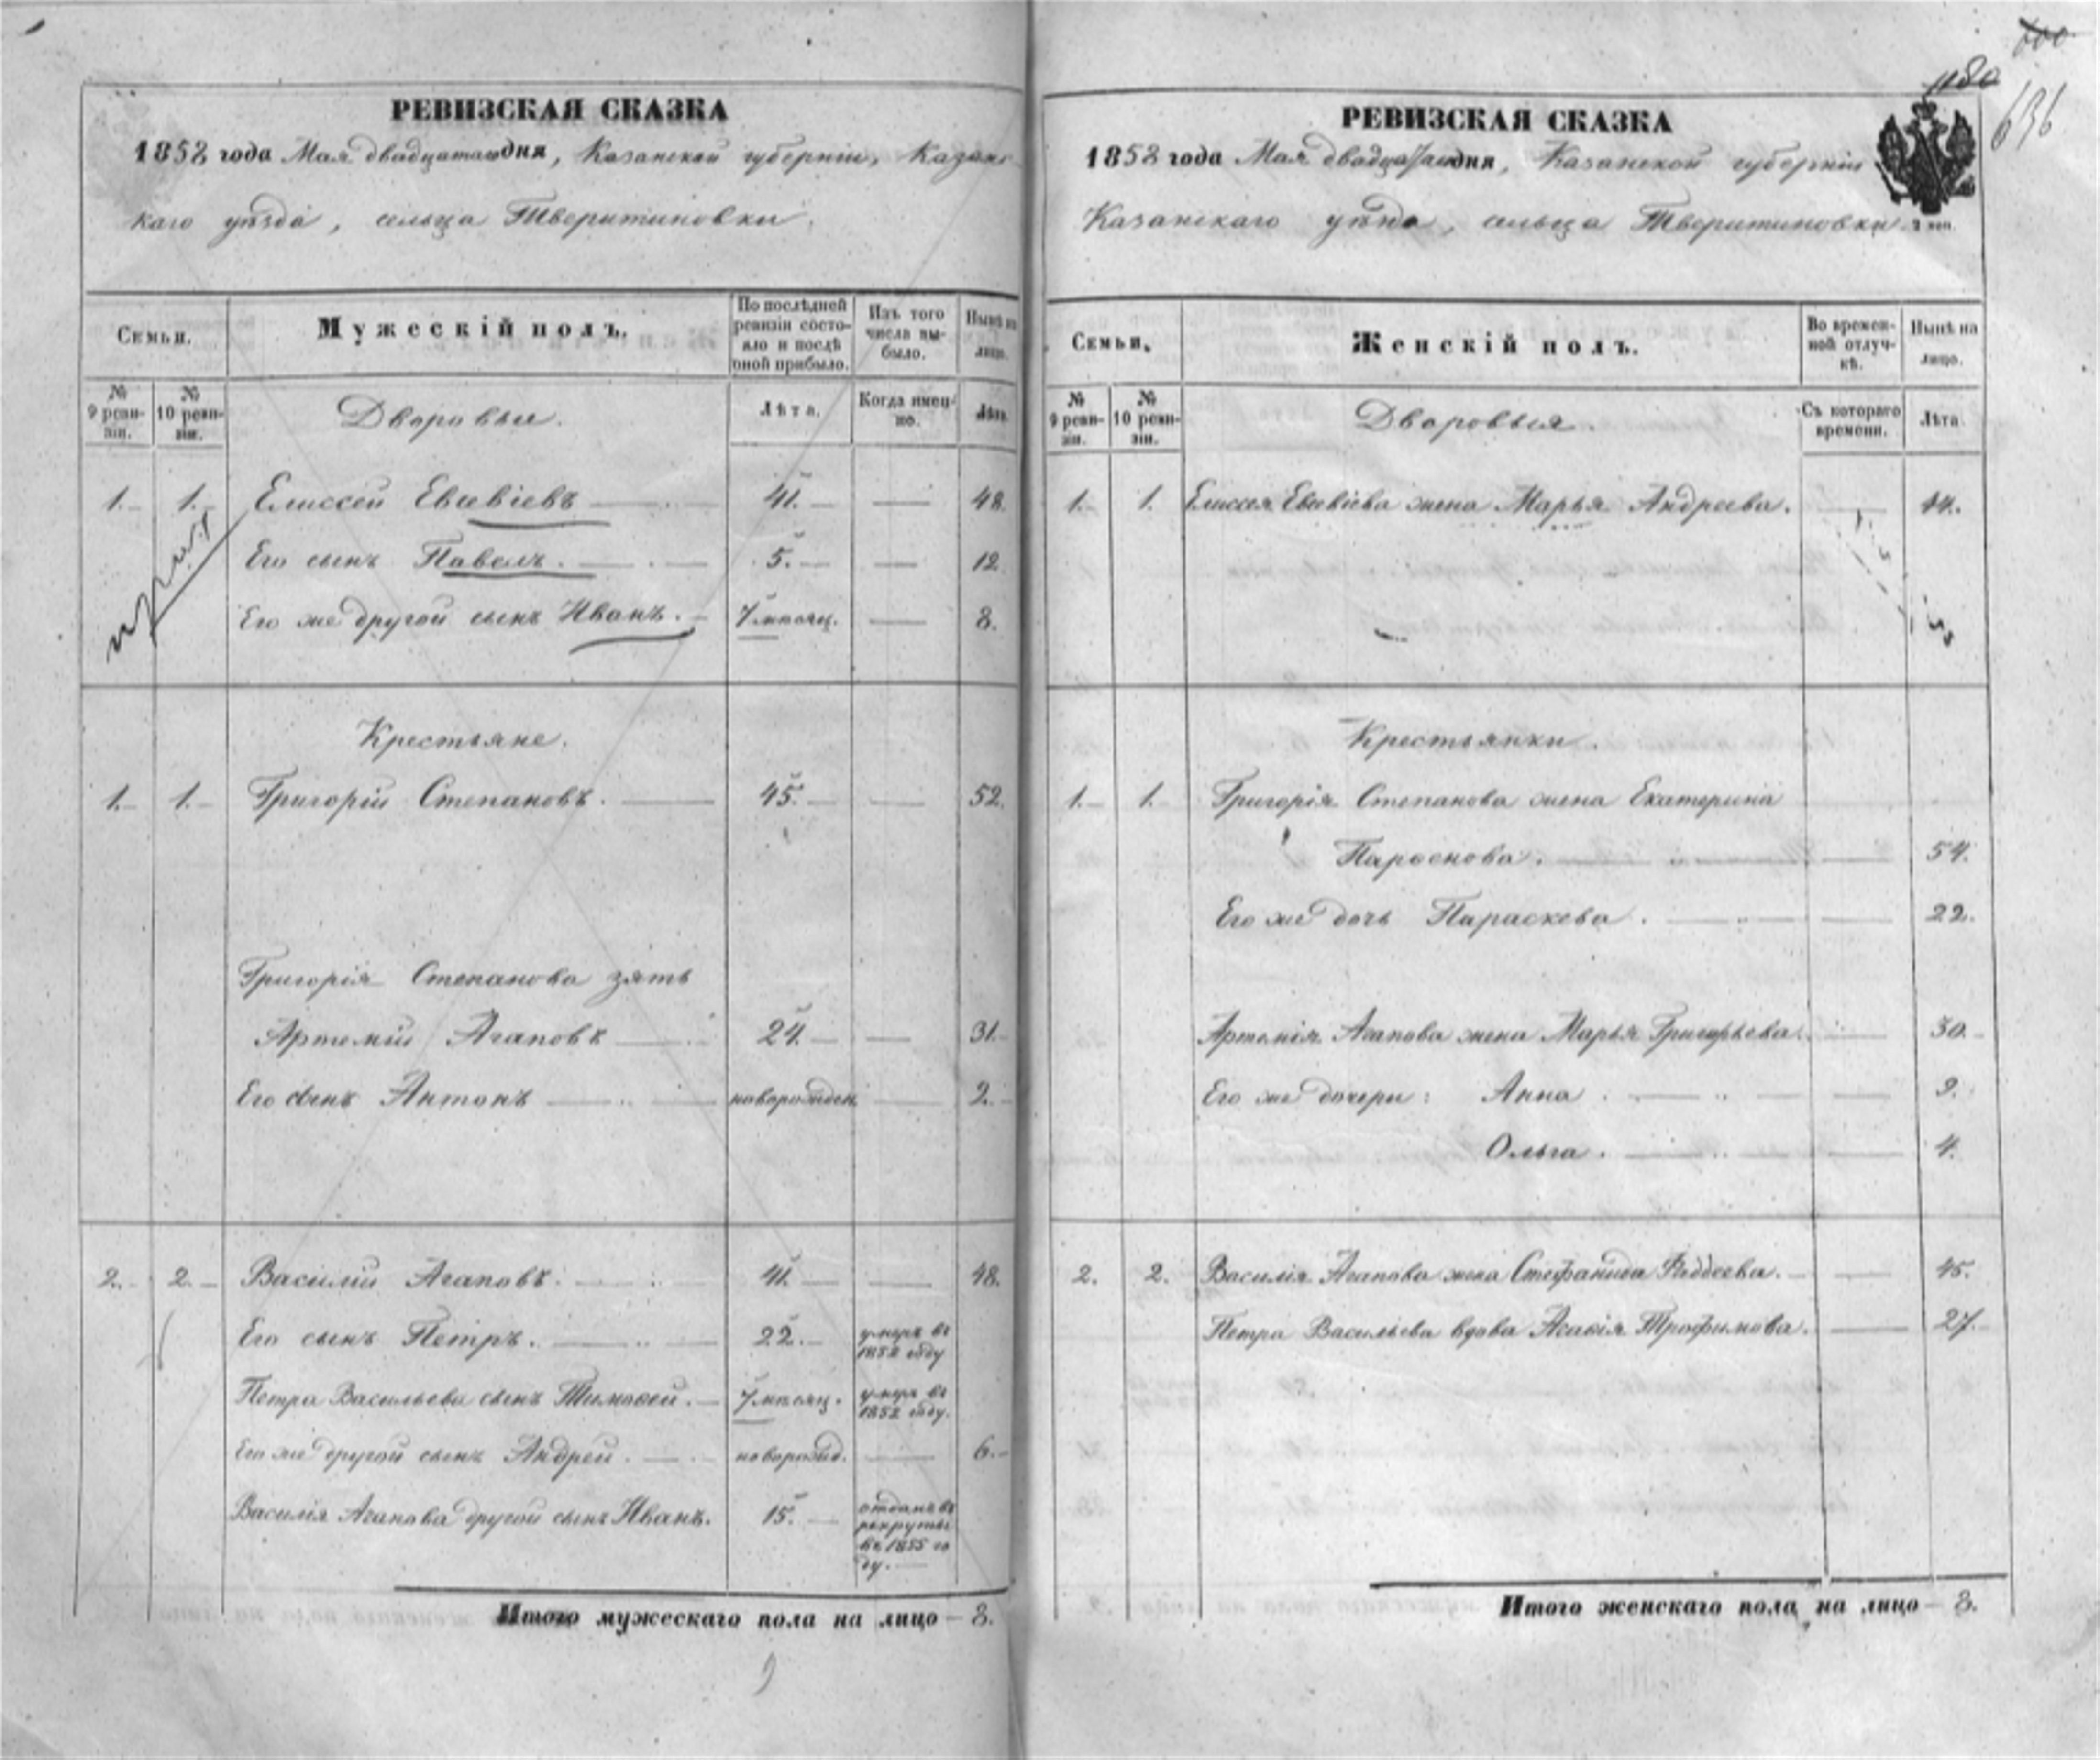 РЕВИЗСКАЯ СКАЗКА
1858 года Мая двадцатаго дня, Казанской губерніи, Казанс
каго уѣзда, сельца Тверитиновки.
Семьи.
Мужескій полъ.
По послѣдней ревизіи состояло и послѣ оной прибыло.
Изъ того числа выбыло.
Нынѣ на лицо.
№ 9 ревизіи.
№ 10 ревизіи.
Дворовые.
Лѣта.
Когда именно.
Лѣта.
1. 1. Елиссей Евсевіевъ 41. 48.
Его сынъ Павелъ. 5. 12
Его же другой сынъ Иванъ. 7 мѣсяц. 8.
Крестьяне.
1. 1. Григорій Степановъ. 45. 52.
Григорія Степанова зять
Артемій Агаповъ 24. 31.
Его сынъ Антонъ новорожден. 2.
2. 2. Василій Агаповъ. 41. 48.
Его сынъ Петръ. 22. умеръ въ 1852 году
Петра Васильева сынъ Тимофей. 7 мѣсяц. умеръ въ 1852 году.
Его же другой сынъ Андрей. новорожд. 6.
Василія Агапова другой сынъ Иванъ. 15. отданъ въ рекруты въ 1855 году.
Итого мужескаго пола на лицо 8.
1180
636
РЕВИЗСКАЯ СКАЗКА
1858 года Мая двадцатаго дня, Казанской губерніи
Казанскаго уѣзда, сельца Тверитиновки.
Семьи.
Женскій полъ.
Во временной отлучкѣ.
Нынѣ на лицо.
№ 9 ревизіи.
№ 10 ревизіи.
Дворовыя.
Съ котораго времени.
Лѣта.
1. 1. Елиссея Евсевіева жена Марья Андреева. 44.
Крестьянки.
1. 1. Григорія Степанова жена Екатерина
54.
Его же дочь Параскева. 22.
Артемія Агапова жена Марья Григорьева. 30.
Его же дочери: Анна 9.
Ольга. 4.
2. 2. Василія Агапова жена Стефанида Фаддеева. 45.
Петра Васильева вдова Агафія Трофимова. 27.
Итого женскаго пола на лицо 8.